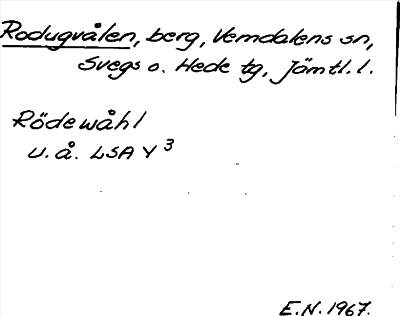 Rodugvålen, berg, Vemdalens sn,
Svegs o. Hede tg, Jämtl. l.
Rödewåhl
u. å. LSA Y 3
E.N. 1967.